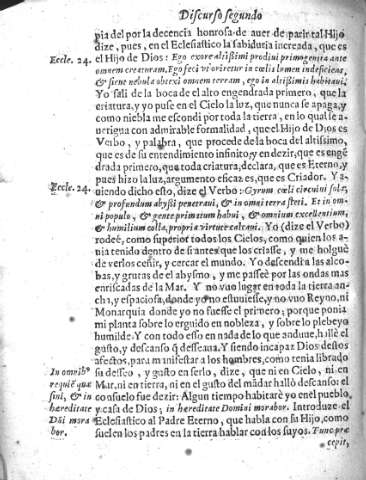 Discurso segundo
pia del por la decencia honrosa de auer de parir tal Hijo
dize, pues, en el Eclesiastico la sabiduria increada, que es
Eccle. 24. el Hijo de Dios: Ego ex ore altissimi prodiui primogenita ante
omnem creaturam. Ego feci vt oriretur in cœlis lumen indeficiens,
& sicut nebula obtexi omnem terram, ego in altissimis habitaui.
Yo sali de la boca de el alto engendrada primero, que la
criatura, y yo puse en el Cielo la luz, que nunca se apaga, y
como niebla me escondi por toda la tierra, en lo qual se a-
uerigua con admirable formalidad, que el Hijo de Dios es
Verbo, y palabra, que procede de la boca del altissimo,
que es de su entendimiento infinito y en dezir, que es engẽ
drada primero, que toda criatura, declara, que es Eterno, y
pues hizo la luz, argumento eficaz es, que es Criador. Ya-
Eccle. 24. uiendo dicho esto, dize el Verbo: Gyrum cœli circuiui sola,
& profundum abyssi penetraui, & in omni terra steti. Et in om-
ni populo, & gente primatum habui, & omnium excellentium,
& humilium colla, propria virtute calcaui. Yo (dize el Verbo)
rodeè, como superior todos los Cielos, como quien los a-
uia tenido dentro de si antes que los criasse, y me holguè
de verlos ceñir, y cercar el mundo. Yo descendi a las alco-
bas, y grutas de el abysmo, y me passeè por las ondas mas
enriscadas de la Mar. Y no vuo lugar en toda la tierra an-
cha, y espaciosa, donde yo no estuuiesse, y no vuo Reyno, ni
Monarquia donde yo no fuesse el primero; porque ponia
mi planta sobre lo erguido en nobleza, y sobre lo plebeyo
humilde. Y con todo esso en nada de lo que anduue, hallè el
gusto, y descanso q̃ desseaua. Y siendo incapaz Dios destos
afectos, para manifestar a los hombres, como tenia librado
In omnib⁹ su desseo, y gusto en serlo, dize, que ni en Cielo, ni en
requiẽ quæ Mar, ni en tierra, ni en el gusto del mãdar hallò descanso: el
siui, & in consuelo fue dezir: Algun tiempo habitarè yo en el pueblo,
hæreditate y casa de Dios; in hereditate Domini morabor. Introduze el
Dñi mora Eclesiastico al Padre Eterno, que habla con su Hijo, como
bor. suelen los padres en la tierra hablar con los suyos. Tunc præ
cepit,